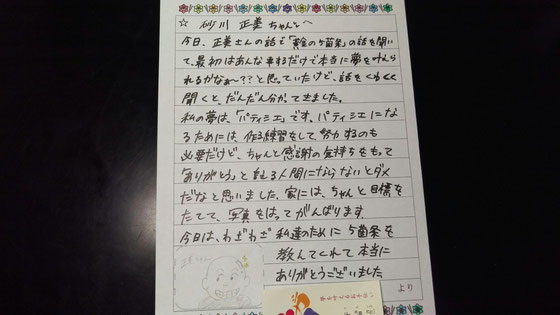 ☆ 砂川 正美 ちゃんへ
今日、正美さんの話で「黄金の5箇条」の話を聞い
て、最初はあんな事するだけで本当に夢を叶えら
れるかなぁ〜??と思っていたけど、話をくわしく
聞くと、だんだん分かってきました。
私の夢は、「パティシエ」です。パティシエにな
るためには、作る練習をして、努力するのも
必要だけど、ちゃんと感謝の気持ちをもって
「ありがとう」と言える人間にならないとダメ
だなと思いました。家には、ちゃんと目標を
たてて、写真をはってがんばります。
今日は、わざわざ私達のために5箇条を
教えてくれて本当に
ありがとうございました
より